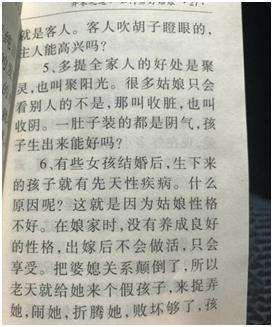 就是客人。客人吹胡子瞪眼的，
主人能高兴吗？
5、多提全家人的好处是聚
灵，也叫聚阳光。很多姑娘只会
看别人的不是，那叫收脏，也叫
收阴。一肚子装的都是阴气，孩
子生出来能好吗？
6、有些女孩结婚后，生下来
的孩子就有先天性疾病。什么
原因呢？这就是因为姑娘性格
不好。在娘家时，没有养成良好
的性格，出嫁后不会做活，只会
享受。把婆媳关系颠倒了，所以
老天就给她来个假孩子，来捉弄
她，闹她，折腾她，败坏够了，孩